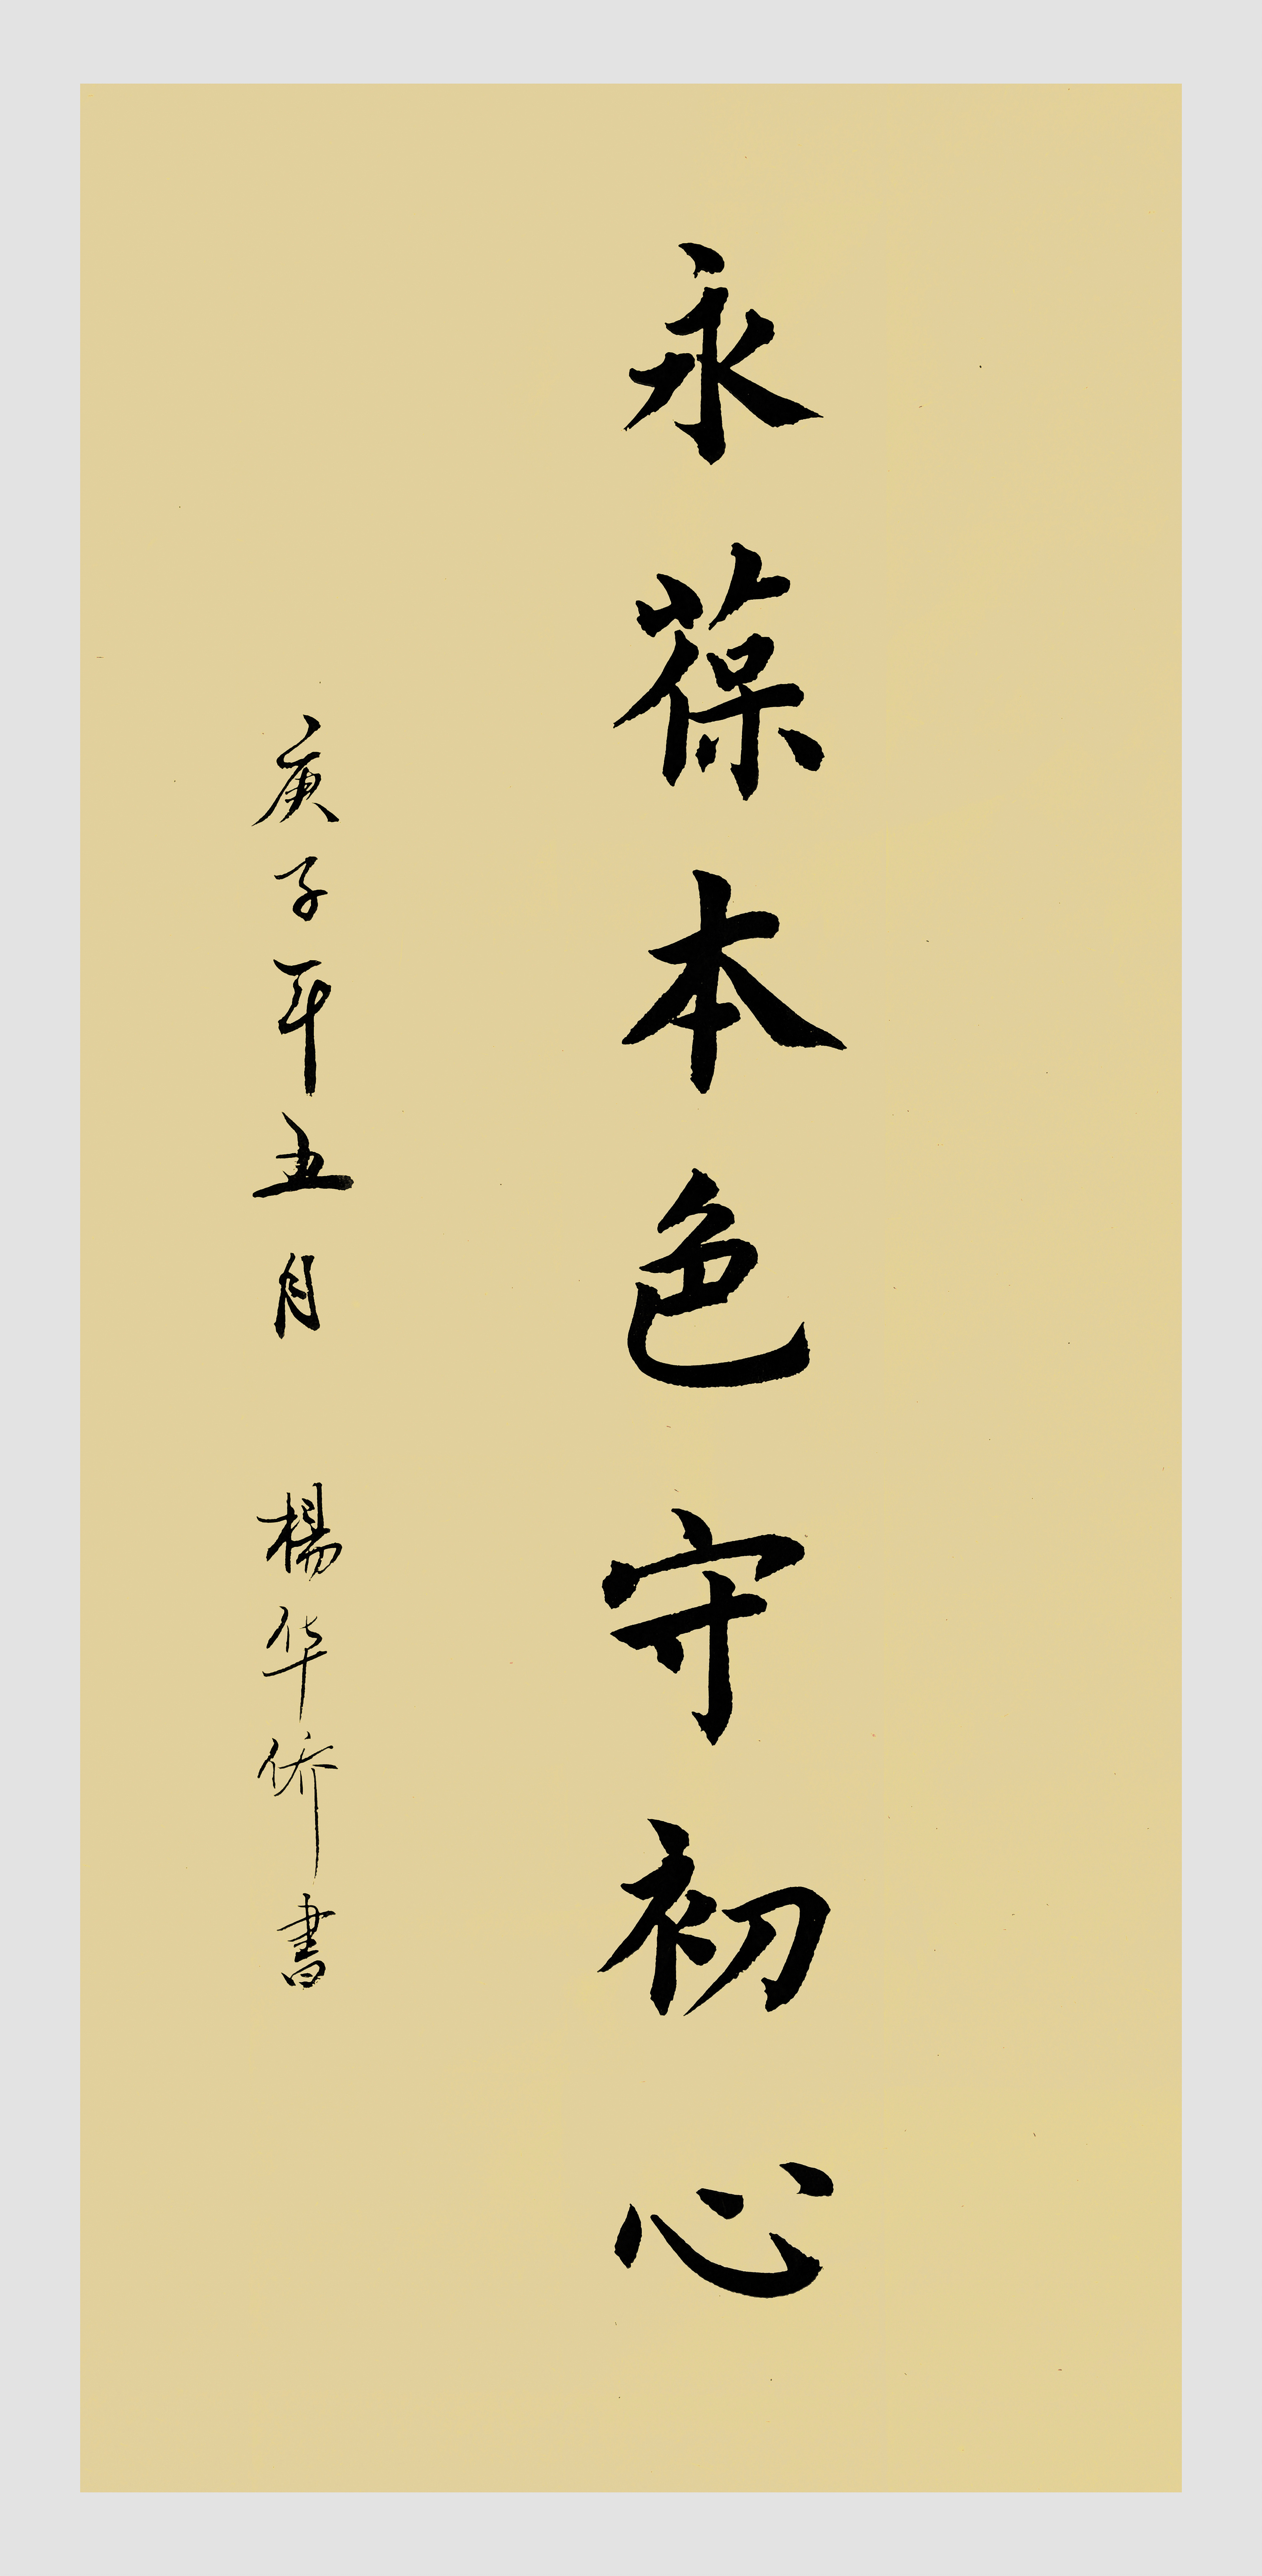 永葆本色守初心
庚子年五月 楊华侨書